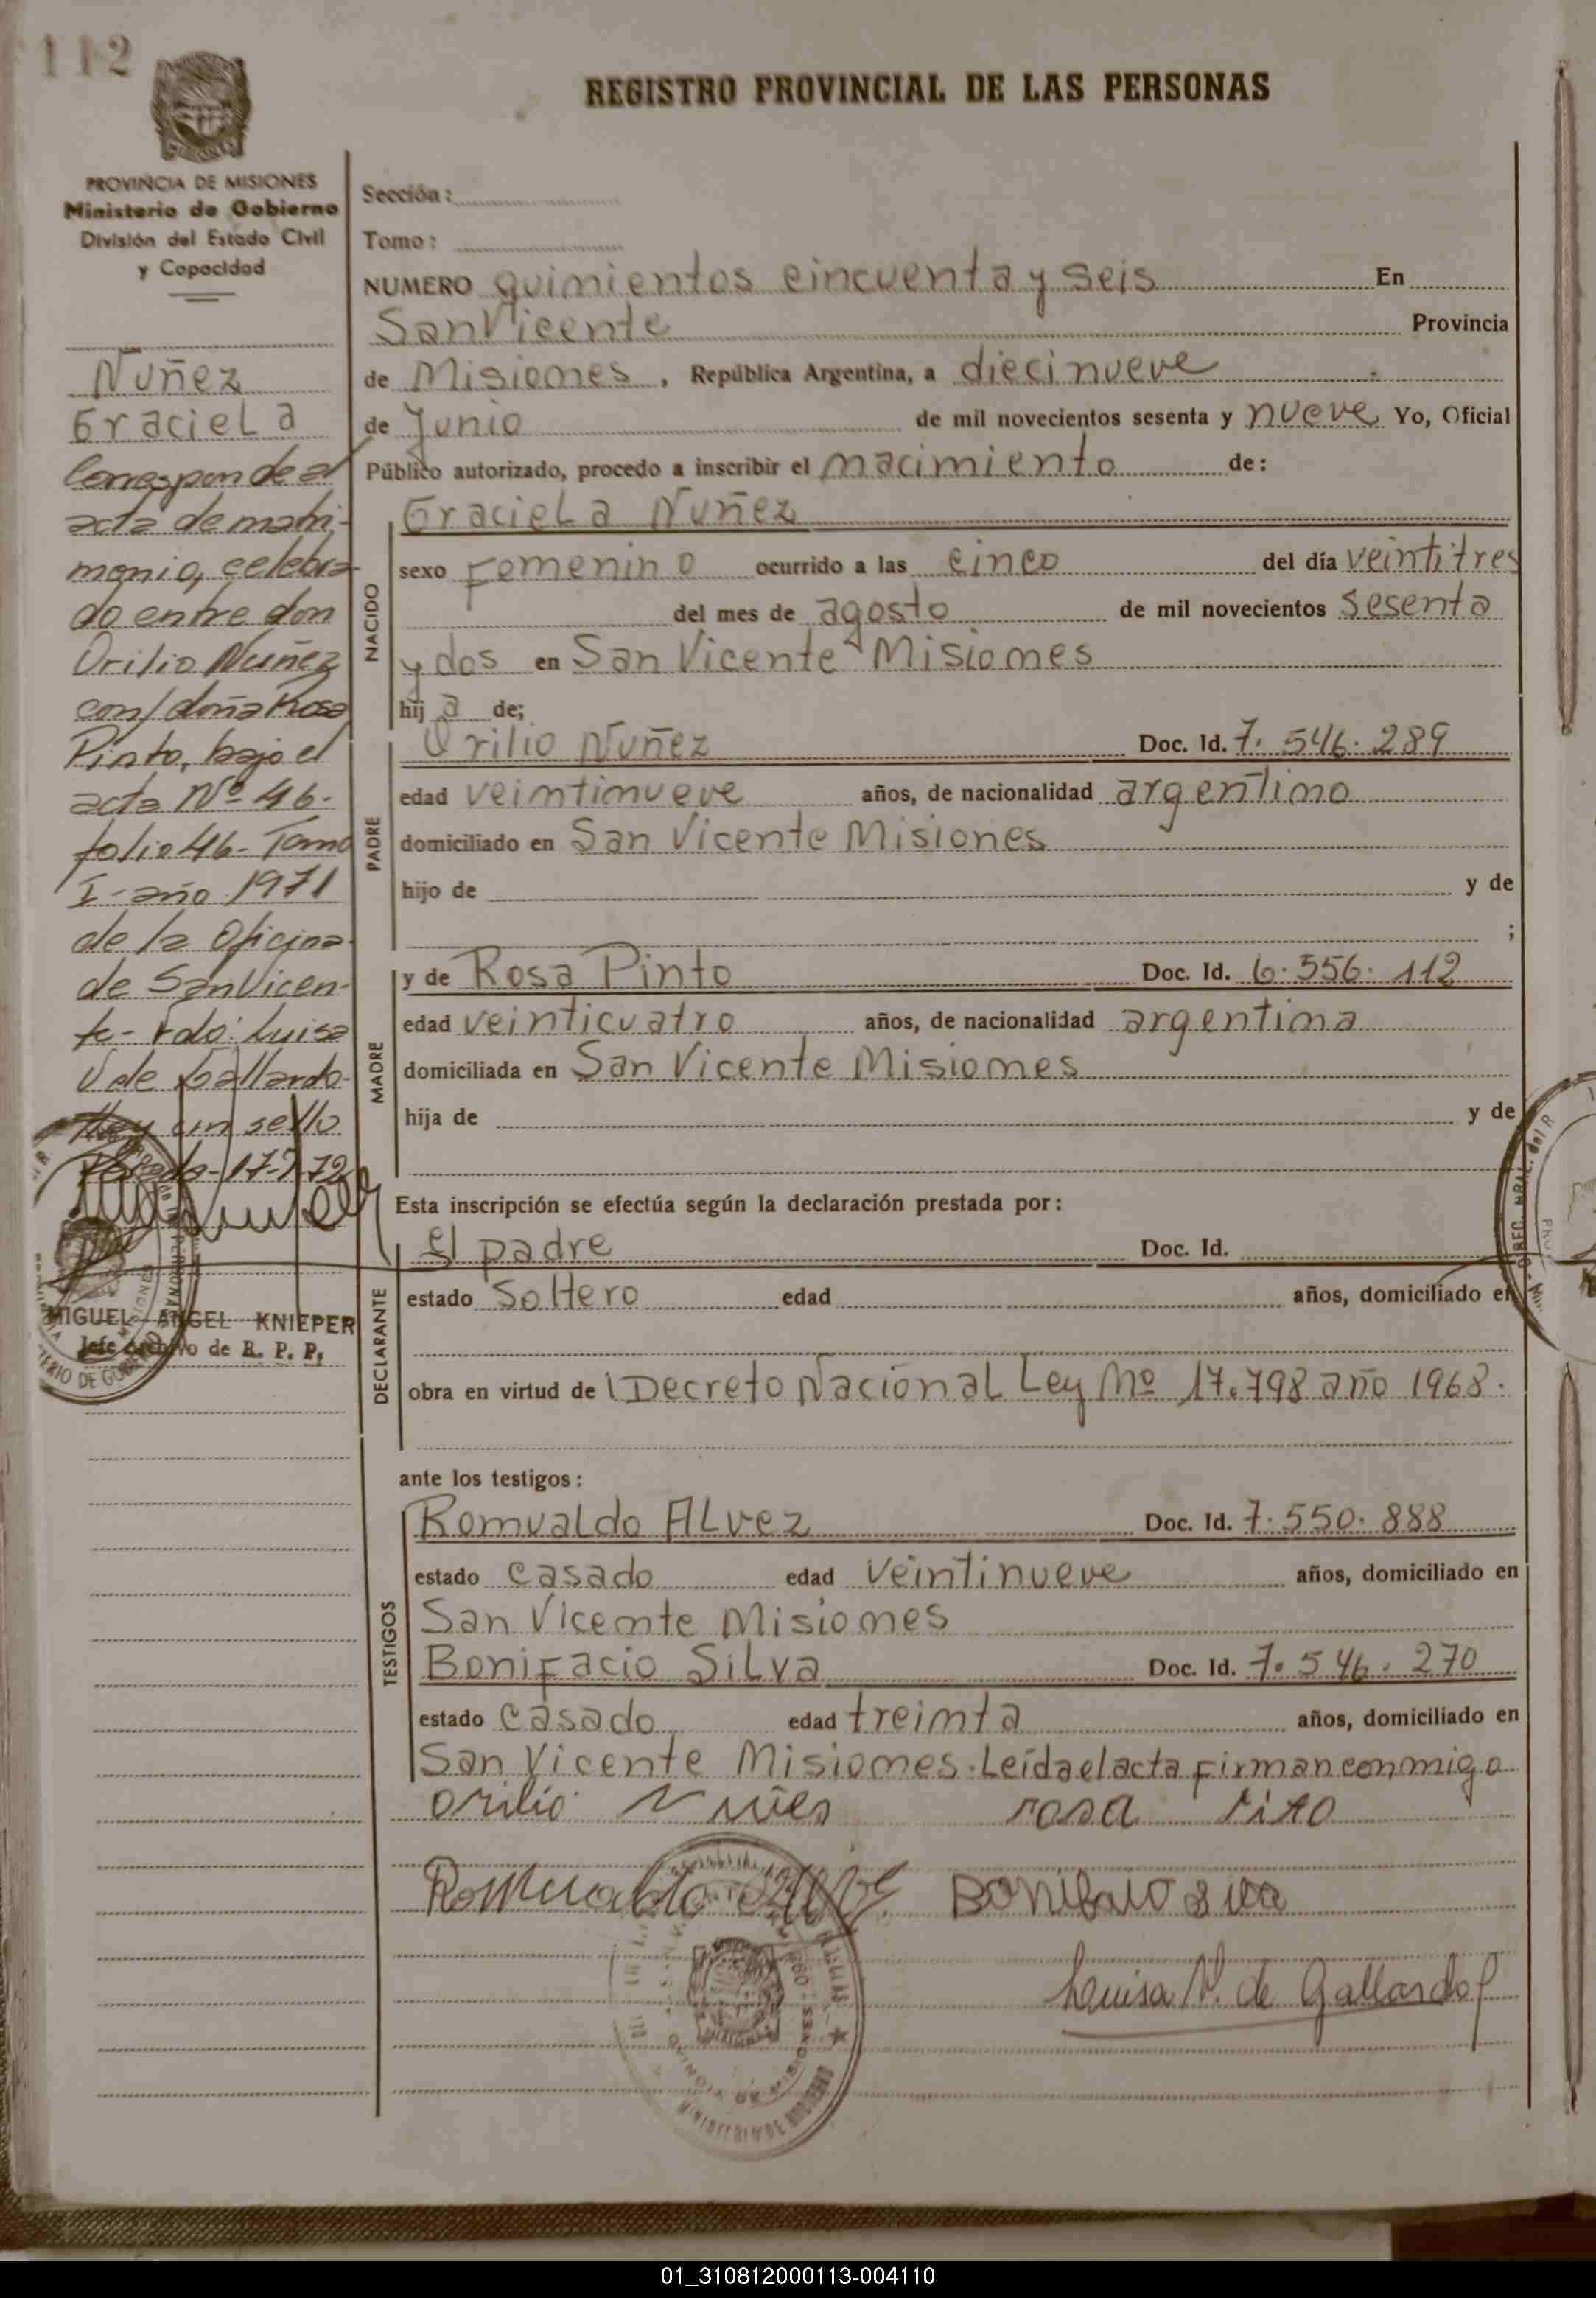 112
REGISTRO PROVINCIAL DE LAS PERSONAS
PROVINCIA DE MISIONES
Ministerio de Gobierno
División del Estado Civil
y Capacidad
Nuñez
Graciela
Corresponde al
acta de matri-
monio, celebra-
do entre don
Orilio Nuñez
con/doña Rosa
Pinto, bajo el
acta Nº 46-
folio 46- Tomo
I- año 1971
de la Oficina
de San Vicen-
te- Fdo: Luisa
V de Gallardo-
Hay un sello
17-7-72
MIGUEL ANGEL KNIEPER
Jefe Archivo de R. P. P.
Sección:
Tomo:
NUMERO quinientos cincuenta y seis En
San Vicente Provincia
de Misiones, República Argentina, a diecinueve
de Junio de mil novecientos sesenta y nueve Yo, Oficial
Público autorizado, procedo a inscribir el nacimiento de:
NACIDO
Graciela Nuñez
sexo Femenino ocurrido a las cinco del día veintitres
del mes de agosto de mil novecientos sesenta
y dos en San Vicente Misiones
hij a de;
PADRE
Orilio Nuñez Doc. Id. 7. 546. 289
edad veintinueve años, de nacionalidad argentino
domiciliado en San Vicente Misiones
hijo de y de
;
MADRE
y de Rosa Pinto Doc. Id. 6. 556. 112
edad veinticuatro años, de nacionalidad argentina
domiciliada en San Vicente Misiones
hija de y de
Esta inscripción se efectúa según la declaración prestada por:
DECLARANTE
el padre Doc. Id.
estado Soltero edad años, domiciliado en
obra en virtud de Decreto Nacional Ley Nº 17.798 año 1968.
ante los testigos:
TESTIGOS
Romualdo Alvez Doc. Id. 7. 550. 888
estado casado edad veintinueve años, domiciliado en
San Vicente Misiones
Bonifacio Silva Doc. Id. 7. 546. 270
estado casado edad treinta años, domiciliado en
San Vicente Misiones. Leída el acta firman conmigo
orilio Nuñes rosa Pito
Romualdo Bonifacio Silva
Luisa V. de Gallardo
01_310812000113-004110